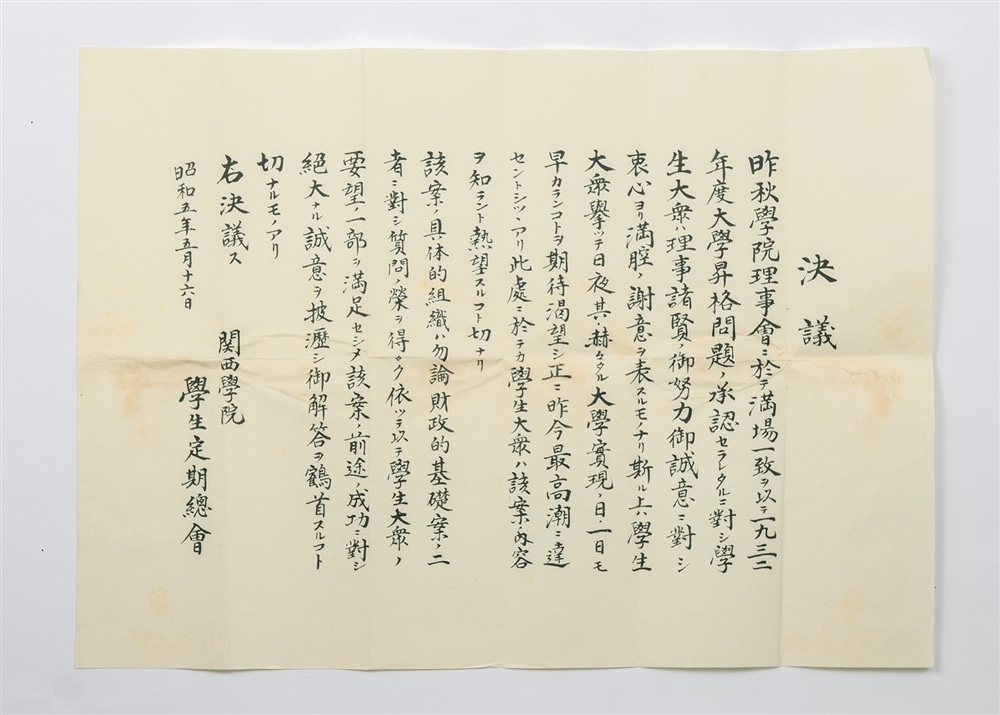 決議
昨秋學院理事會ニ於テ満場一致ヲ以テ一九三二
年度大學昇格問題ノ承認セラレタルニ對シ學
生大衆ハ理事諸賢ノ御努力御誠意ニ對シ
衷心ヨリ満腔ノ謝意ヲ表スルモノナリ斯ル上ハ學生
大衆擧ツテ日夜其ノ赫々タル大學實現ノ日ノ一日モ
早カランコトヲ期待渇望シ正ニ昨今最高潮ニ達
セントシツヽアリ此處ニ於テカ學生大衆ハ該案ノ内容
ヲ知ラント熱望スルコト切ナリ
該案ノ具体的組織ハ勿論財政的基礎案ノ二
者ニ對シ質問ノ榮ヲ得タク依ツテ以テ學生大衆ノ
要望ノ一部ヲ満足セシメ該案ノ前途ノ成功ニ對シ
絕大ナル誠意ヲ披瀝シ御解答ヲ鶴首スルコト
切ナルモノアリ
右決議ス
関西學院
學生定期總會
昭和五年五月十六日